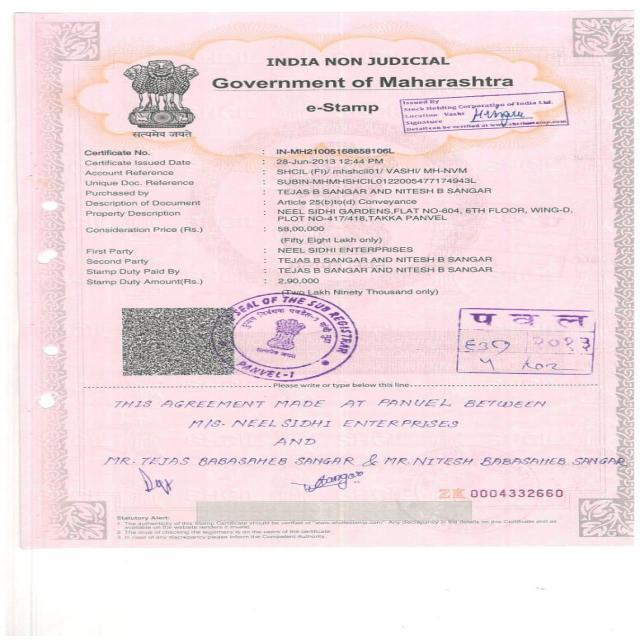 INDIA NON JUDICIAL
Government of Maharashtra
e-Stamp
Issued By
Stock Holding Corporation of India Ltd.
Location Vashi
Signature
Detail can be verified at www.shcilestamp.com
सत्यमेव जयते
Certificate No. : IN-MH21005168658106L
Certificate Issued Date : 28-Jun-2013 12:44 PM
Account Reference : SHCIL (FI)/ mhshcil01/ VASHI/ MH-NVM
Unique Doc. Reference : SUBIN-MHMHSHCIL0122005477174943L
Purchased by : TEJAS B SANGAR AND NITESH B SANGAR
Description of Document : Article 25(b)to(d) Conveyance
Property Description : NEEL SIDHI GARDENS,FLAT NO-604, 6TH FLOOR, WING-D,
PLOT NO-417/418,TAKKA PANVEL
Consideration Price (Rs.) : 58,00,000
(Fifty Eight Lakh only)
First Party : NEEL SIDHI ENTERPRISES
Second Party : TEJAS B SANGAR AND NITESH B SANGAR
Stamp Duty Paid By : TEJAS B SANGAR AND NITESH B SANGAR
Stamp Duty Amount(Rs.) : 2,90,000
(Two Lakh Ninety Thousand only)
SEAL OF THE SUB REGISTRAR
सत्यमेव जयते
PANVEL-1
प व ल
२०१३
Please write or type below this line
THIS AGREEMENT MADE AT PANVEL BETWEEN
M/S. NEEL SIDHI ENTERPRISES
AND
MR. TEJAS BABASAHEB SANGAR & MR. NITESH BABASAHEB SANGAR
ZK 0004332660
Statutory Alert:
1. The authenticity of this Stamp Certificate should be verified at "www.shcilestamp.com". Any discrepancy in the details on this Certificate and as
available on the website renders it invalid.
2. The onus of checking the legitimacy is on the users of the certificate.
3. In case of any discrepancy please inform the Competent Authority.